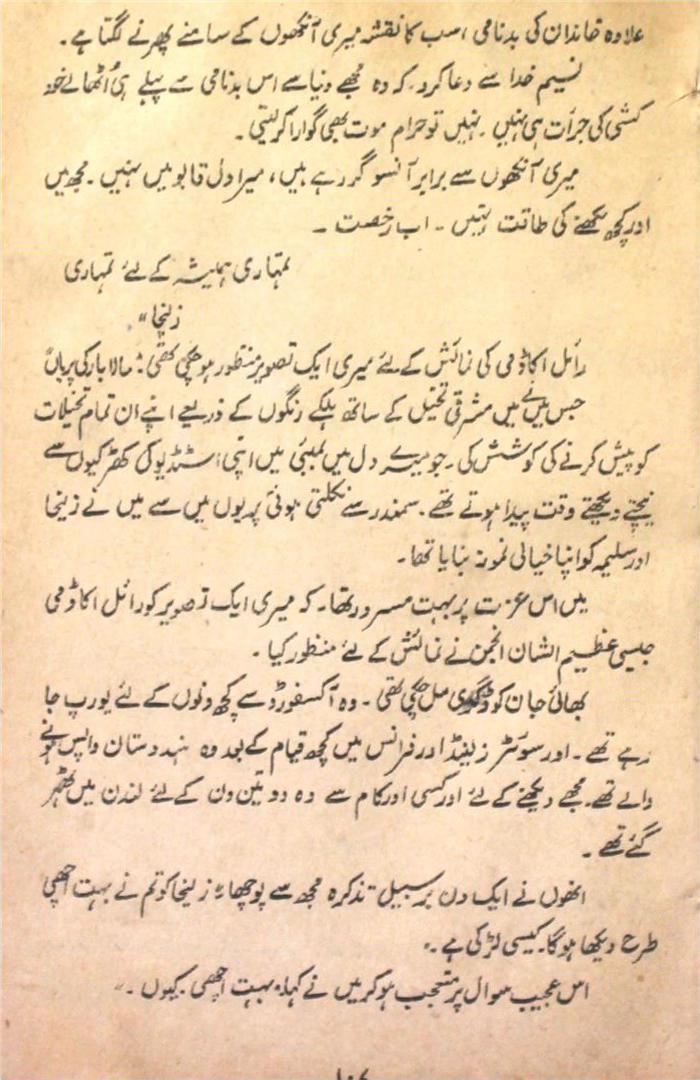 علاوہ خاندان کی بدنامی، اسب کا نقشہ میری آنکھوں کے سامنے پھرنے لگتا ہے۔
نسیم خدا سے دعا کرو۔ کہ وہ مجھے دنیا سے اس بدنامی سے پہلے ہی اُٹھالے خود
کشی کی جرأت ہی نہیں۔ نہیں تو حرام موت بھی گوارا کر لیتی۔
میری آنکھوں سے برابر آنسو گر رہے ہیں، میرا دل قابو میں نہیں۔ مجھ میں
اور کچھ لکھنے کی طاقت نہیں۔ اب رخصت ۔
تمہاری ہمیشہ کے لئے تمہاری
زلیخا"
رائل اکاڈمی کی نمائش کے لئے میری ایک تصویر منظور ہو چکی تھی: "مالابار کی پریاں"
جس میں نے میں مشرقی تخیل کے ساتھ ہلکے رنگوں کے ذریعے اپنے ان تمام تخیلات
کو پیش کرنے کی کوشش کی۔ جو میرے دل میں بمبئی میں اپنی اسٹڈیو کی کھڑکیوں سے
نیچے دیکھتے وقت پیدا ہوتے تھے۔ سمندر سے نکلتی ہوئی پریوں میں سے میں نے زلیخا
اور سلیمہ کو اپنا خیالی نمونہ بنایا تھا۔
میں اس عزت پر بہت مسرور تھا۔ کہ میری ایک تصویر کو رائل اکاڈمی
جیسی عظیم الشان انجمن نے نمائش کے لئے منظور کیا۔
بھائی جان کو ڈگری مل چکی تھی۔ وہ آکسفورڈ سے کچھ دنوں کے لئے یورپ جا
رہے تھے۔ اور سوئٹزرلینڈ اور فرانس میں کچھ قیام کے بعد وہ ہندوستان واپس ہونے
والے تھے۔ مجھے دیکھنے کے لئے اور کسی اور کام سے وہ دو تین دن کے لئے لندن میں ٹھہر
گئے تھے۔
انھوں نے ایک دن بر سبیل تذکرہ مجھ سے پوچھا "زلیخا کو تم نے بہت اچھی
طرح دیکھا ہوگا۔ کیسی لڑکی ہے۔"
اس عجیب سوال پر متعجب ہو کر میں نے کہا۔ "بہت اچھی۔ کیوں۔"